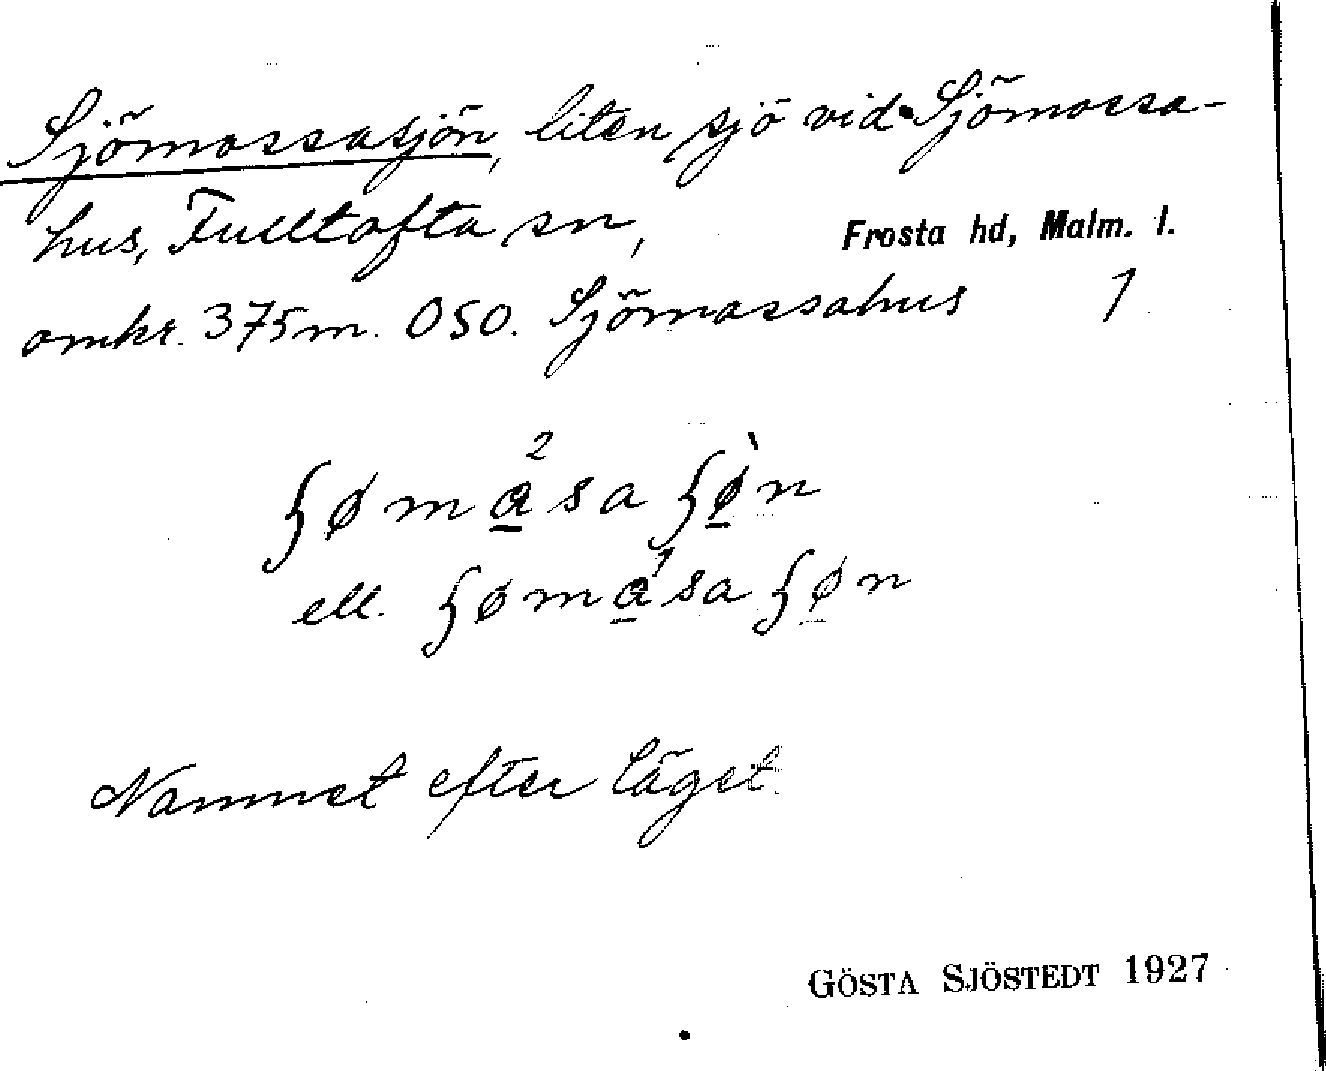 Sjömossasjön, liten sjö vid Sjömossa-
hus, Fulltofta sn, Frosta hd, Malm. l.
omkr. 375 m. OSO. Sjömossahus 1
ʃøma²saʃø̀n
ell. ʃøma¹saʃøn
Namnet efter läget.
GÖSTA SJÖSTEDT 1927